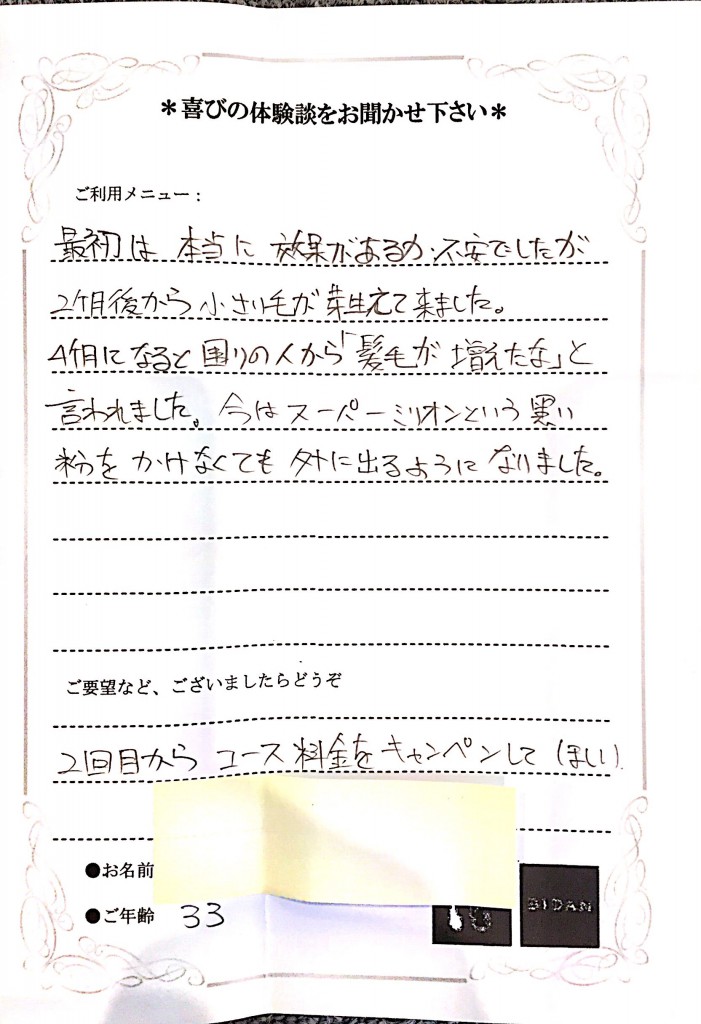 ＊喜びの体験談をお聞かせ下さい＊
ご利用メニュー：
最初は 本当に 効果があるか不安でしたが
2ヶ月後から小さい毛が芽生えて来ました。
4ヶ月になると周りの人から「髪毛が増えたな」と
言われました。今はスーパーミリオンという黒い
粉をかけなくても外に出るようになりました。
ご要望など、ございましたらどうぞ
2回目からコース料金をキャンペンしてほしい
●お名前
●ご年齢 33
BIDAN